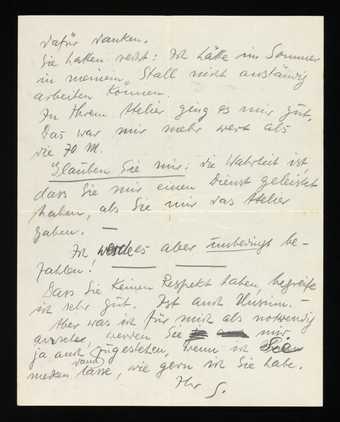 dafür danken.
Sie hatten recht: Ich hätte im Sommer
in meinem Stall nicht anständig
arbeiten können.
In Ihrem Atelier ging es mir gut.
Das war mir mehr wert als
die 70 M.
Glauben Sie mir: die Wahrheit ist
dass Sie mir einen Dienst geleistet
haben, als Sie mir das Atelier
gaben. —
Ich werde es aber unbedingt be-
zahlen!
Dass Sie keinen Respekt haben, begreife
ich sehr gut. Ist auch Unsinn. —
Aber was ich für mich als notwendig
ansehe, werden Sie mir
ja auch zugestehen, wenn ich Sie
merken lasse, wie gern ich Sie habe.
Ihr S.